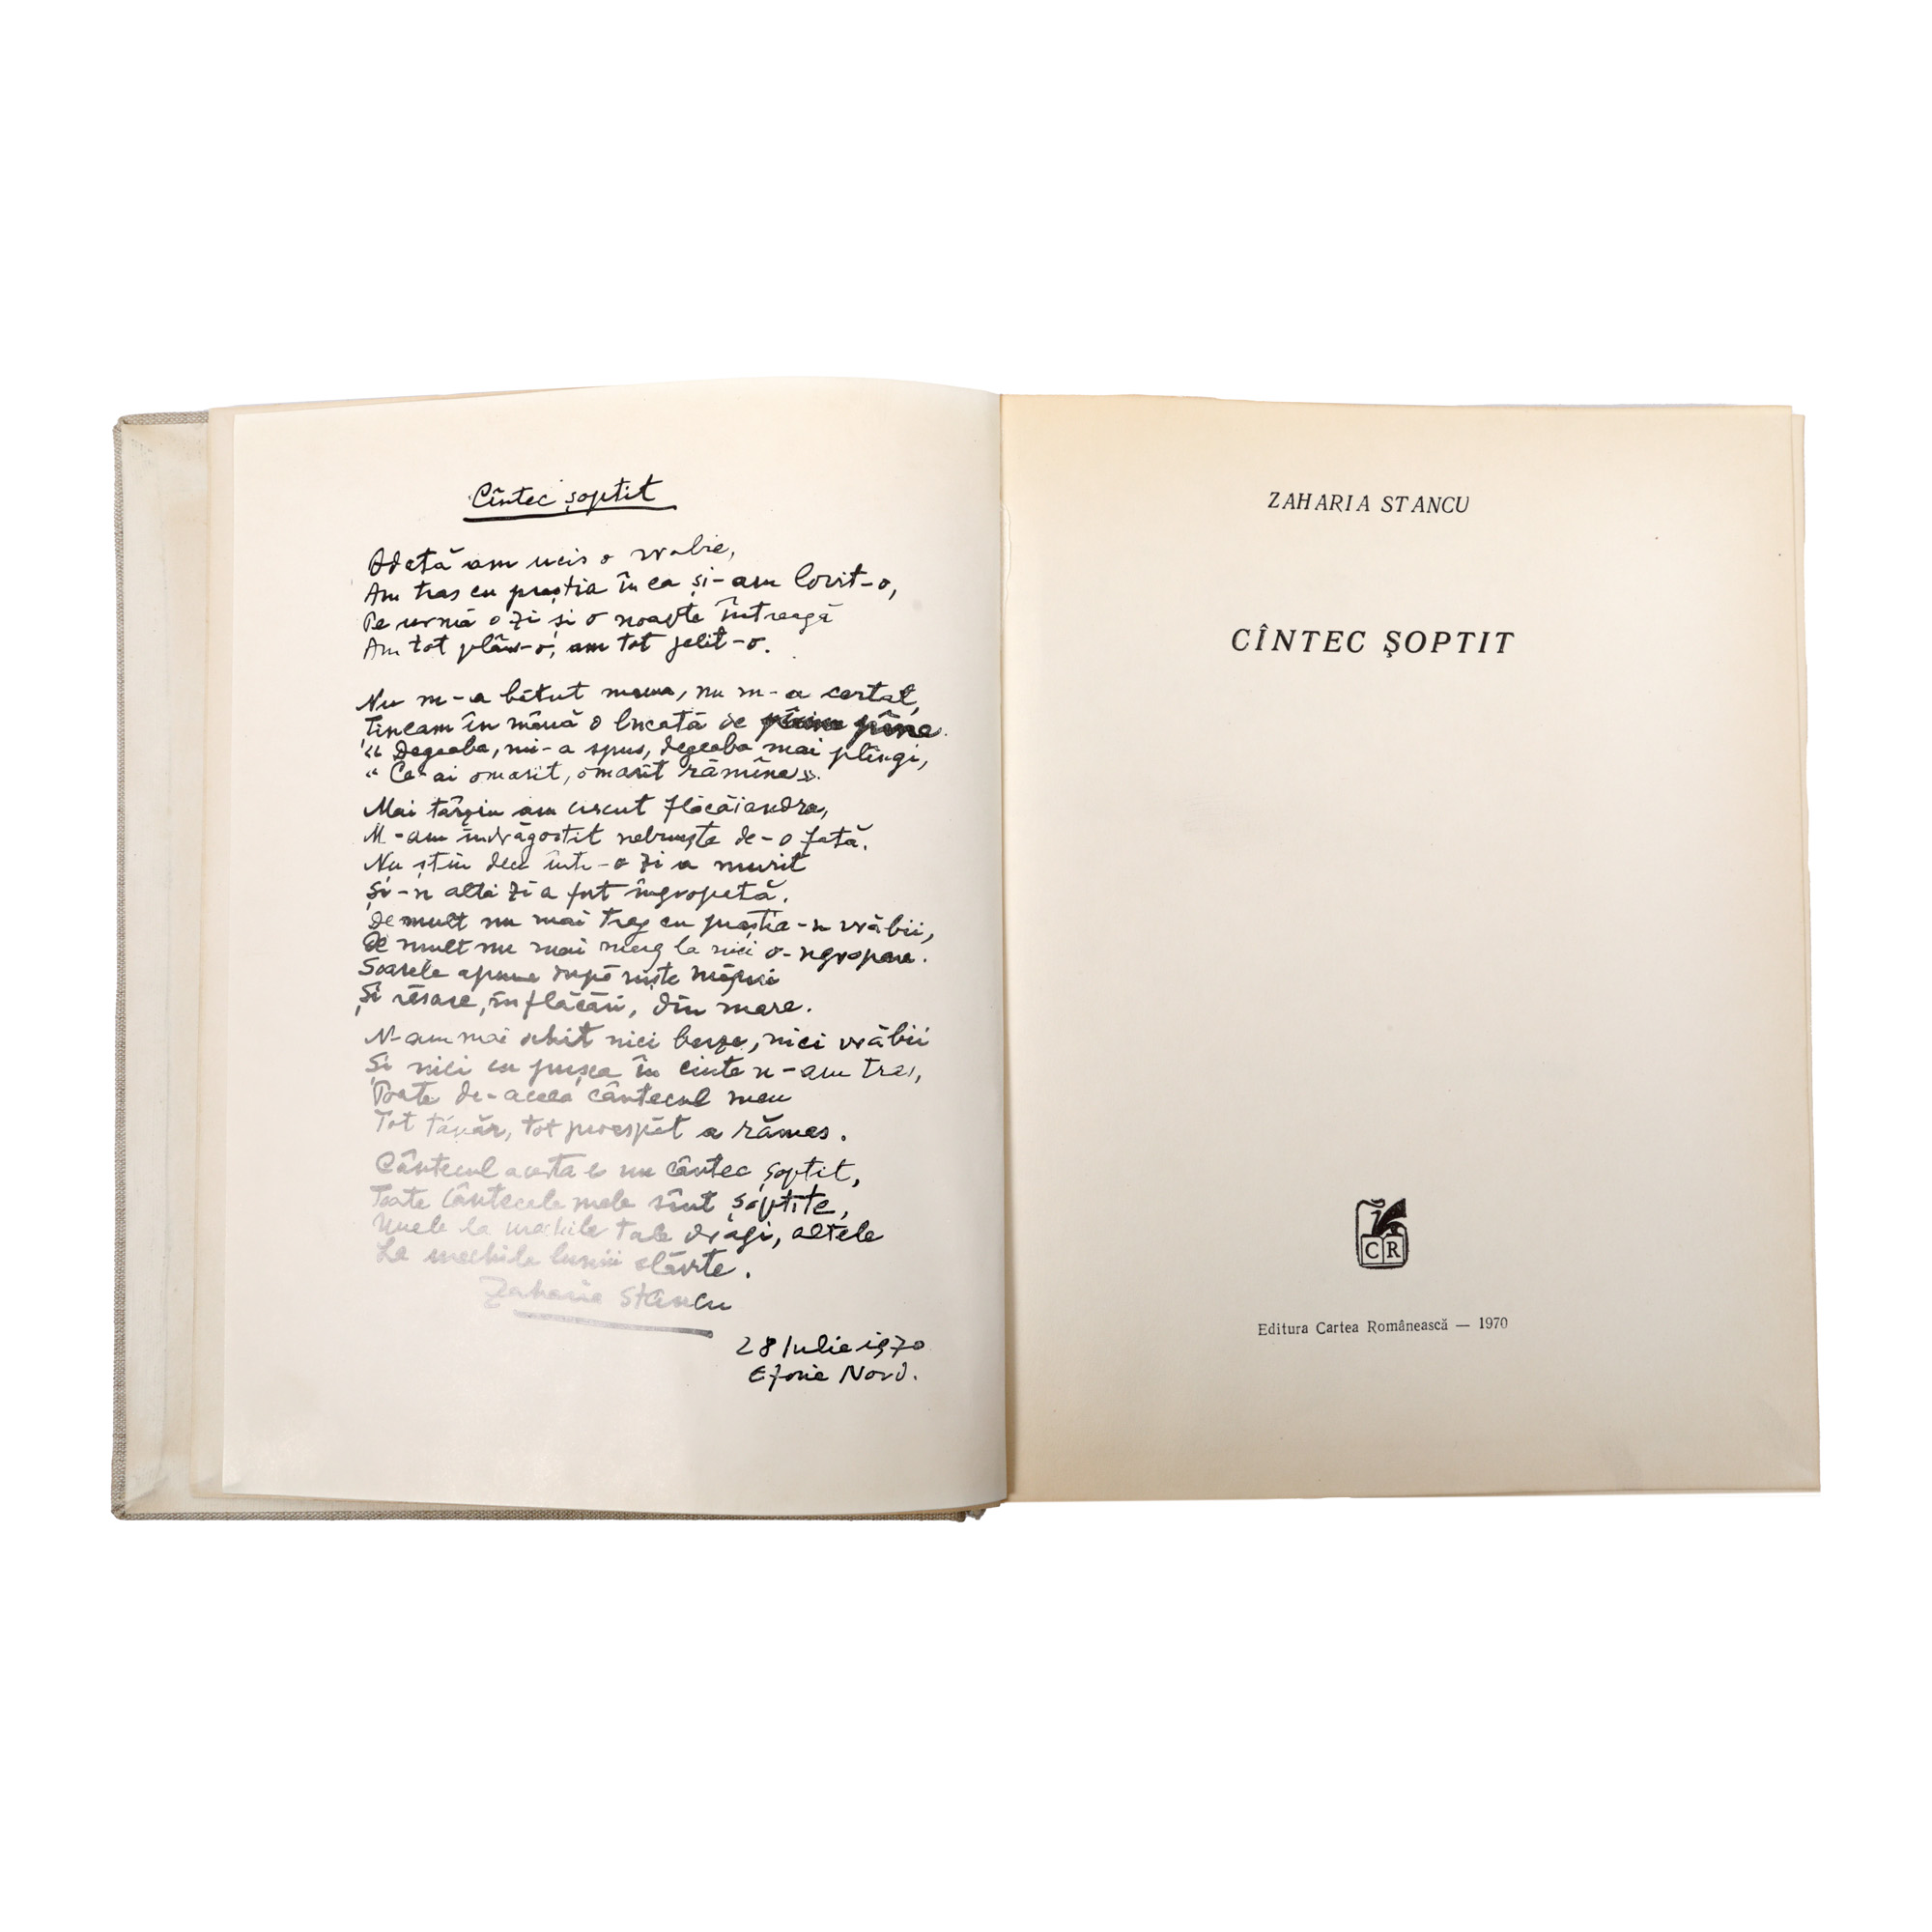 Cîntec șoptit
Odată am ucis o vrabie,
Am tras cu praștia în ea și-am lovit-o,
Pe urmă o zi și o noapte întreagă
Am tot plâns-o, am tot jelit-o.
Nu m-a bătut mama, nu m-a certat,
Țineam în mână o bucată de pîine
« Degeaba, mi-a spus, degeaba mai plîngi,
« Ce-ai omorît, omorît rămîne».
Mai târziu am crescut flăcăiandru,
M-am îndrăgostit nebunește de-o fată.
Nu știu de ce într-o zi a murit
Și-n altă zi a fost îngropată.
De mult nu mai trag cu praștia-n vrăbii,
De mult nu mai merg la nici o-ngropare.
Soarele apune după niște măguri
Și răsare, în flăcări, din mare.
N-am mai ochit nici berze, nici vrăbii
Și nici cu pușca în ciute n-am tras,
Poate de-aceea cântecul meu
Tot tânăr, tot proaspăt a rămas.
Cântecul acesta e un cântec șoptit,
Toate cântecele mele sînt șoptite,
Unele la urechile tale dragi, altele
La urechile lumii slăvite.
Zaharia Stancu
28 Iulie 1970
Eforie Nord.
ZAHARIA STANCU
CÎNTEC ŞOPTIT
CR
Editura Cartea Românească — 1970